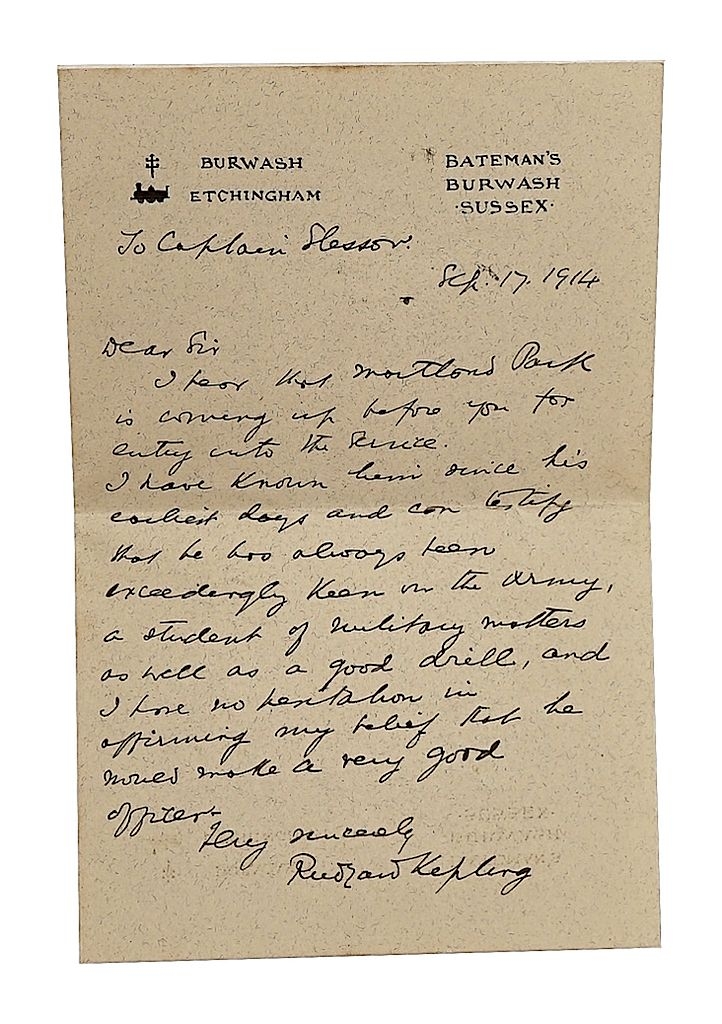 BURWASH
ETCHINGHAM
BATEMAN'S
BURWASH
·SUSSEX·
To Captain Slessor.
Sep. 17. 1914
Dear Sir
I hear that Maitland Park
is coming up before you for
entry into the Service.
I have known him since his
earliest days and can testify
that he has always been
exceedingly keen on the Army,
a student of military matters
as well as a good drill, and
I have no hesitation in
affirming my belief that he
would make a very good
officer.
Very sincerely
Rudyard Kipling